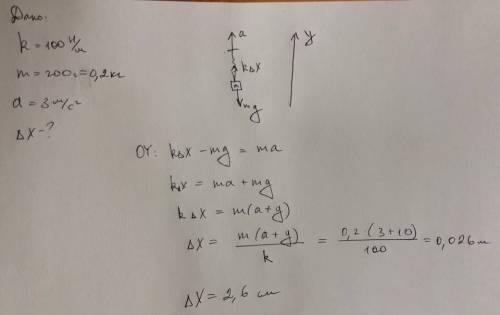 Дано:
k = 100 Н/м
m = 200 г = 0,2 кг
a = 3 м/с²
Δx - ?
a
y
kΔx
m
mg
OY: kΔx - mg = ma
kΔx = ma + mg
kΔx = m(a+g)
Δx = m(a+g)/k = 0,2·(3+10)/100 = 0,026 м
Δx = 2,6 см